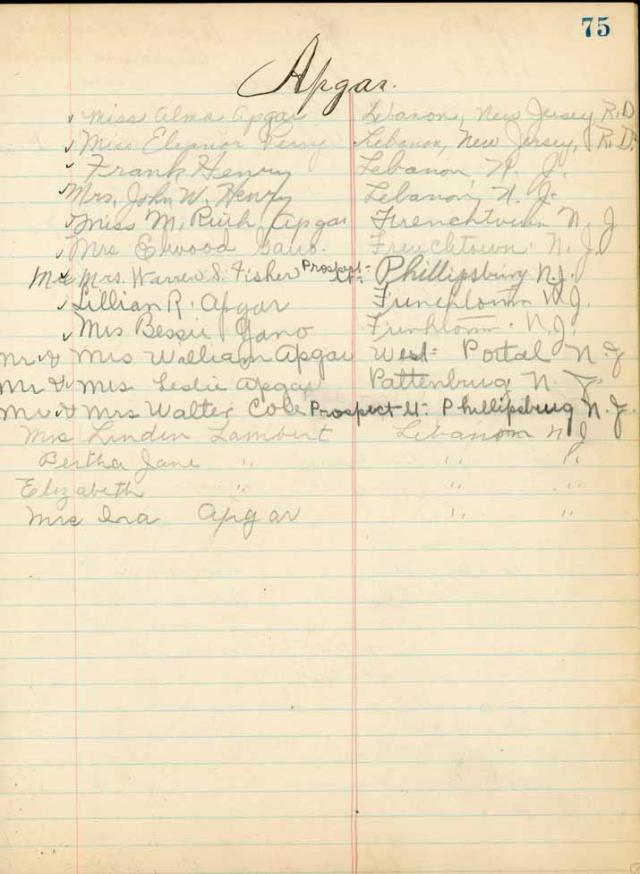 75
Apgar.
✓ Miss Alma Apgar Lebanon, New Jersey R.D
✓ Miss Eleanor Lebanon, New Jersey, R.D.
✓ Frank Henry Lebanon, N. J.
✓ Mrs. John W. Henry Lebanon, N. J.
✓ Miss M. Ruth Apgar Frenchtown N. J
✓ Mrs Elwood Frenchtown. N. J.
Mr & Mrs. Warren S. Fisher Prospect St. Phillipsburg N.J.
✓ Lillian R. Apgar Frenchtown N.J.
✓ Mrs Bessie Gano Frenchtown. N.J.
Mr & Mrs William Apgar West Portal N J
Mr & Mrs Leslie Apgar Pattenburg N. J.
Mr & Mrs Walter Cole Prospect St. Phillipsburg N. J.
Mrs Linden Lambert Lebanon N J
Bertha Jane " "
Elizabeth " " "
Mrs Ira Apgar " "